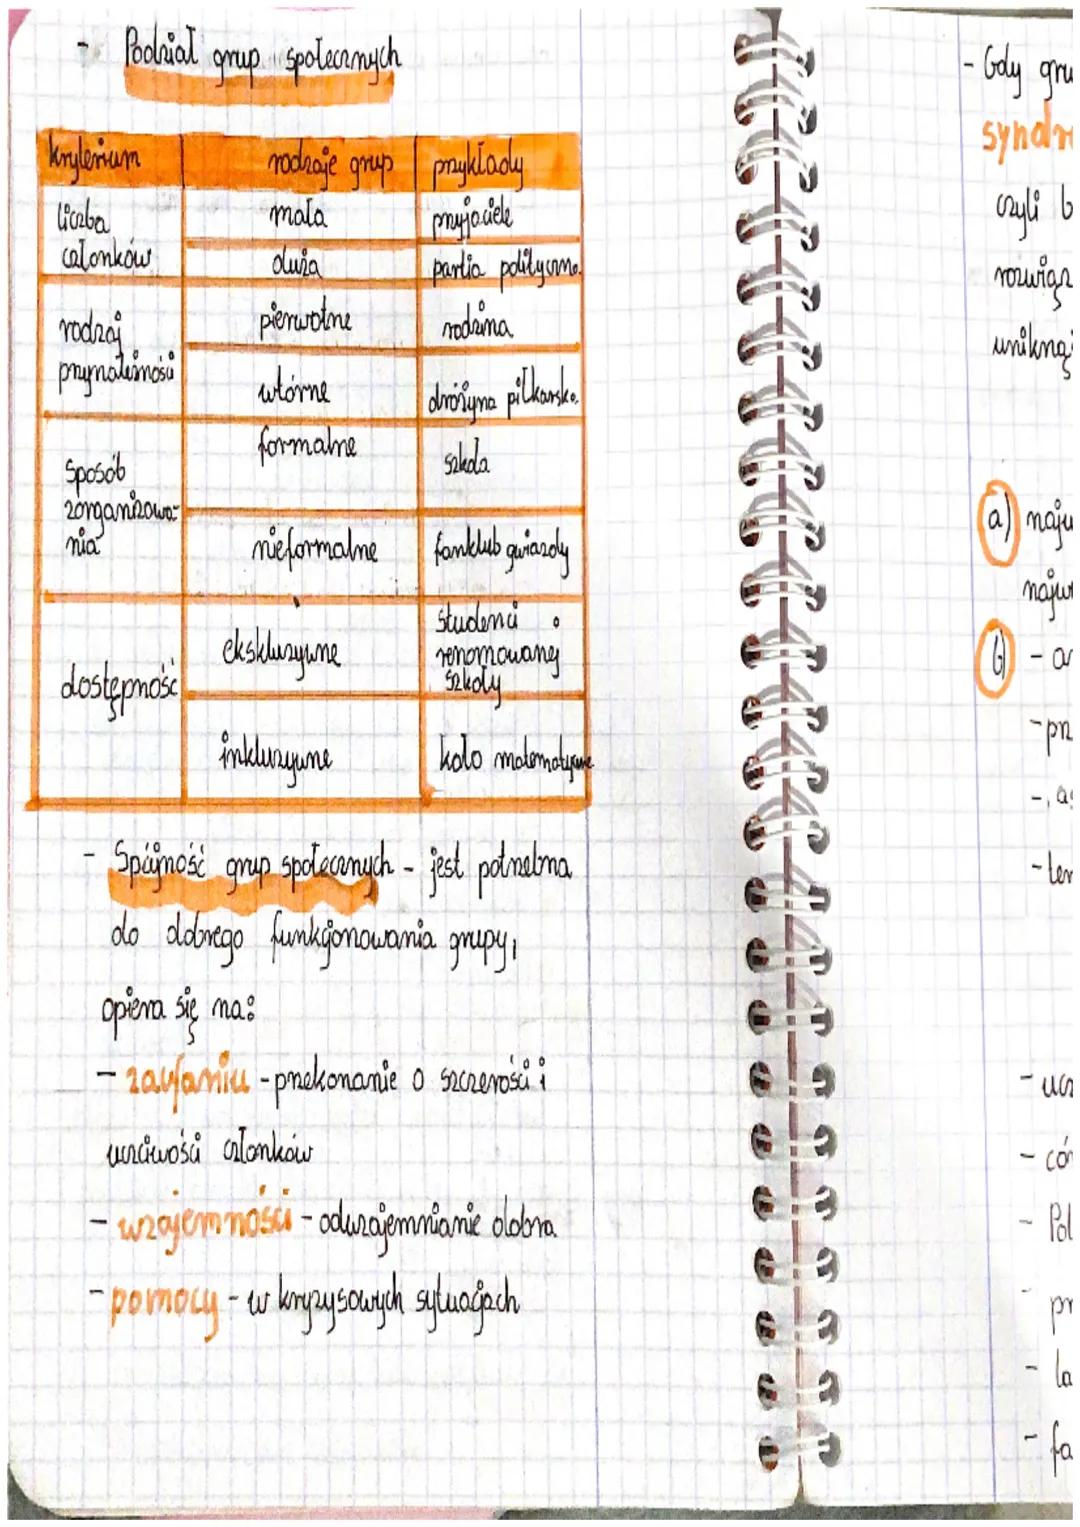 - Podział grup społecznych
kryterium rodzaje grup przykłady
liczba członków mała przyjaciele
duża partia polityczna
rodzaj przynależności pierwotne rodzina
wtórne drużyna piłkarska
sposób zorganizowa-
nia formalne szkoła
nieformalne fanklub gwiazdy
dostępność ekskluzywne studenci
renomowanej
szkoły
inkluzywne koło matematyczne
- Spójność grup społecznych - jest potrzebna
do dobrego funkcjonowania grupy,
opiera się na:
- zaufaniu - przekonanie o szczerości i
uczciwości członków
- wzajemności - odwzajemnianie dobra
- pomocy - w kryzysowych sytuacjach
- Gdy gru
syndr
czyli b
rozwiąz
uniknąć
a) najw
najw
b) - ar
- prz
- as
- ter
- ucz
- cór
- Pol
pr
- la
- fa